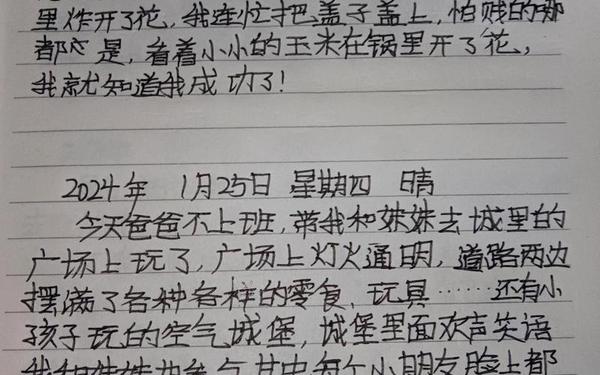 里炸开了花，我连忙把盖子盖上，怕贱的哪
都是，看着小小的玉米在锅里开了花，
我就知道我成功了！
2024年 1月25日 星期四 晴
今天爸爸不上班，带我和妹妹去城里的
广场上玩了，广场上灯火通明，道路两边
摆满了各种各样的零食，玩具……还有小
孩子玩的空气城堡，城堡里面欢声笑语
我和妹妹也参与其中每个小朋友脸上都